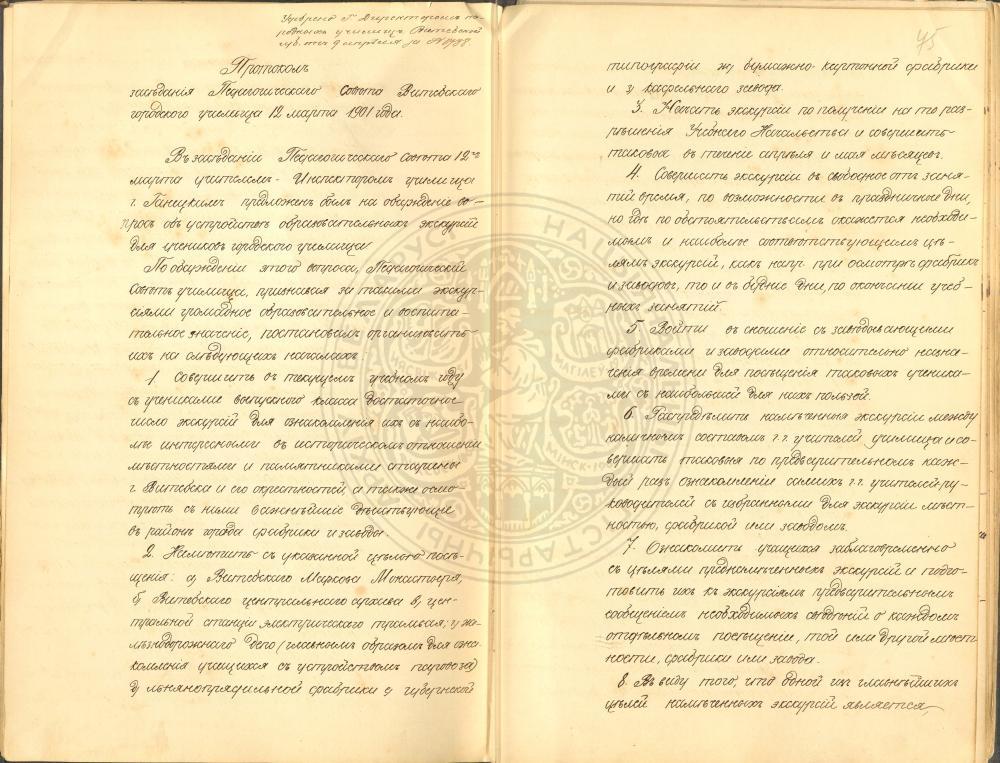 Утверено Г. Директоромъ на-
родныхъ училищъ Витебской
губ. отъ 9 апрѣля за № 1798.
75
Протоколъ
засѣданія Педагогическаго Совѣта Витебскаго
городского училища 12 марта 1901 года.
Въ засѣданіи Педагогическаго совѣта 12го
марта учителемъ-Инспекторомъ училища
г. Ганецкимъ предложенъ былъ на обсужденіе во-
просъ объ устройствѣ образовательныхъ экскурсій
для учениковъ городского училища.
По обсужденіи этого вопроса, Педагогическій
Совѣтъ училища, признавая за такими экскур-
сіями громадное образовательное и воспита-
тельное значеніе, постановилъ организовать
ихъ на слѣдующихъ началахъ:
1. Совершить въ текущемъ учебномъ году
съ учениками выпускного класса достаточное
число экскурсій для ознакомленія ихъ съ наибо-
лѣе интересными въ историческомъ отношеніи
мѣстностями и памятниками старины
г. Витебска и его окрестностей, а также осмо-
трѣть съ ними важнѣйшіе дѣйствующіе
въ районѣ города фабрики и заводы.
2. Намѣтить съ указанной цѣлью посѣ-
щенія: а) Витебскаго Маркова Монастыря,
б) Витебскаго центральнаго архива в) цен-
тральной станціи электрическаго трамвая; г) же-
лѣзнодорожнаго депо (главнымъ образомъ для озна-
комленія учащихся съ устройствомъ паровоза)
д) льнянопрядильной фабрики е) губернской
типографіи ж) бумажно-картонной фабрики
и з) кафельнаго завода.
3. Начать экскурсіи по полученіи на то раз-
рѣшенія Учебнаго Начальства и совершить
таковыя въ теченіе апрѣля и мая мѣсяцевъ.
4. Совершать экскурсіи въ свободное отъ заня-
тій время, по возможности въ праздничные дни,
но гдѣ по обстоятельствамъ окажется необходи-
мымъ и наиболѣе соотвѣтствующимъ цѣ-
лямъ экскурсій, какъ напр. при осмотрѣ фабрикъ
и заводовъ, то и въ будніе дни, по окончаніи учеб-
ныхъ занятій.
5. Войти въ сношеніе съ завѣдывающими
фабриками и заводами относительно назна-
ченія времени для посѣщенія таковыхъ ученика-
ми съ наибольшей для нихъ пользой.
6. Распредѣлить намѣченныя экскурсіи между
наличнымъ составомъ г.г. учителей училища и со-
вершать таковыя по предварительномъ каж-
дый разъ ознакомленіи самихъ г.г. учителей-ру-
ководителей съ избранными для экскурсіи мѣст-
ностью, фабрикой или заводомъ.
7. Ознакомить учащихся заблаговременно
съ цѣлями предназначенныхъ экскурсій и подго-
товить ихъ къ экскурсіямъ предварительнымъ
сообщеніемъ необходимыхъ свѣдѣній о каждомъ
отдѣльномъ посѣщеніи, той или другой мѣст-
ности, фабрики или завода.
8. Въ виду того, что одной изъ главнѣйшихъ
цѣлей намѣченныхъ экскурсій является,